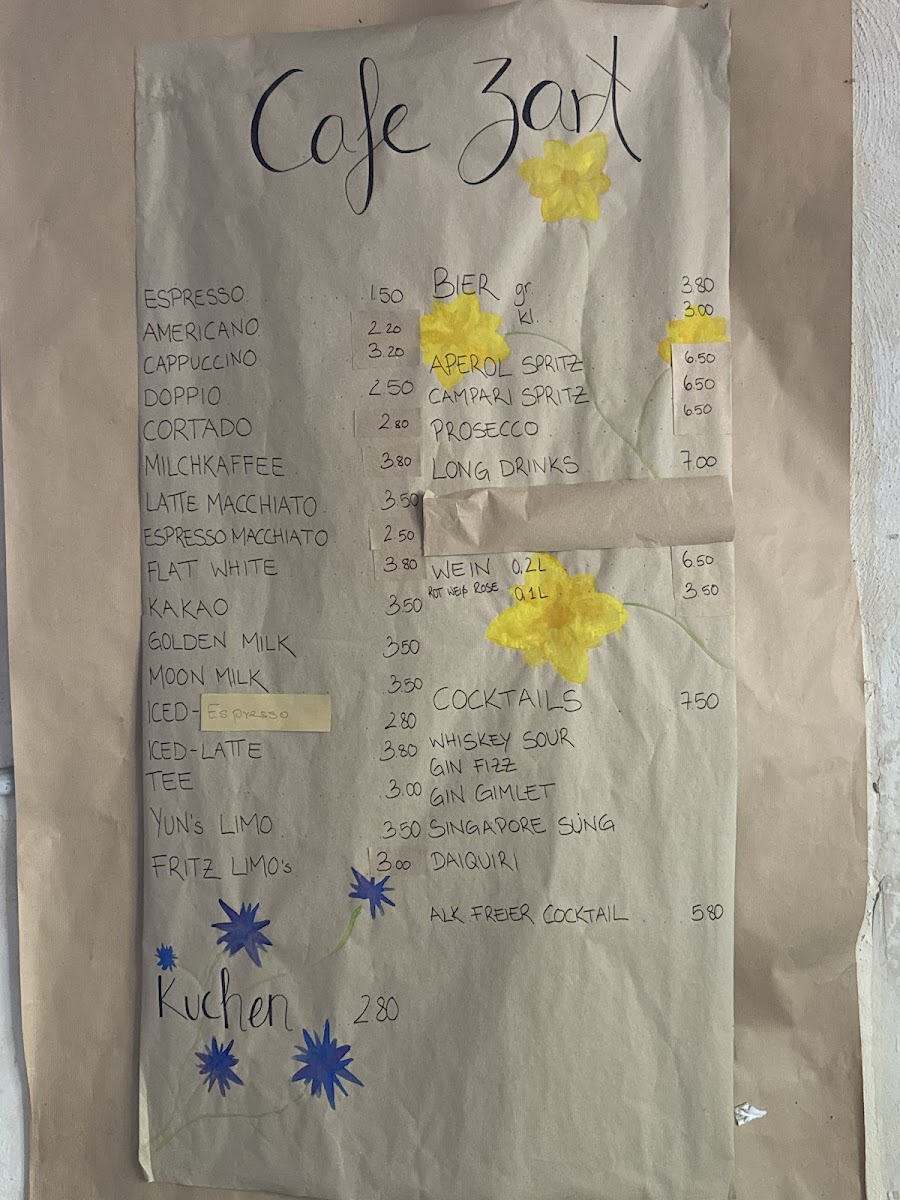 Cafe Zart
ESPRESSO 1.50
AMERICANO 2.20
CAPPUCCINO 3.20
DOPPIO 2.50
CORTADO 2.80
MILCHKAFFEE 3.80
LATTE MACCHIATO 3.50
ESPRESSO MACCHIATO 2.50
FLAT WHITE 3.80
KAKAO 3.50
GOLDEN MILK 3.50
MOON MILK 3.50
ICED-Espresso 2.80
ICED-LATTE 3.80
TEE 3.00
YUN'S LIMO 3.50
FRITZ LIMO's 3.00
Kuchen 2.80
BIER gr. 3.80
kl. 3.00
APEROL SPRITZ 6.50
CAMPARI SPRITZ 6.50
PROSECCO 6.50
LONG DRINKS 7.00
WEIN 0,2L 6.50
ROT WEIß ROSE 0,1L 3.50
COCKTAILS 7.50
WHISKEY SOUR
GIN FIZZ
GIN GIMLET
SINGAPORE SLING
DAIQUIRI
ALK. FREIER COCKTAIL 5.80